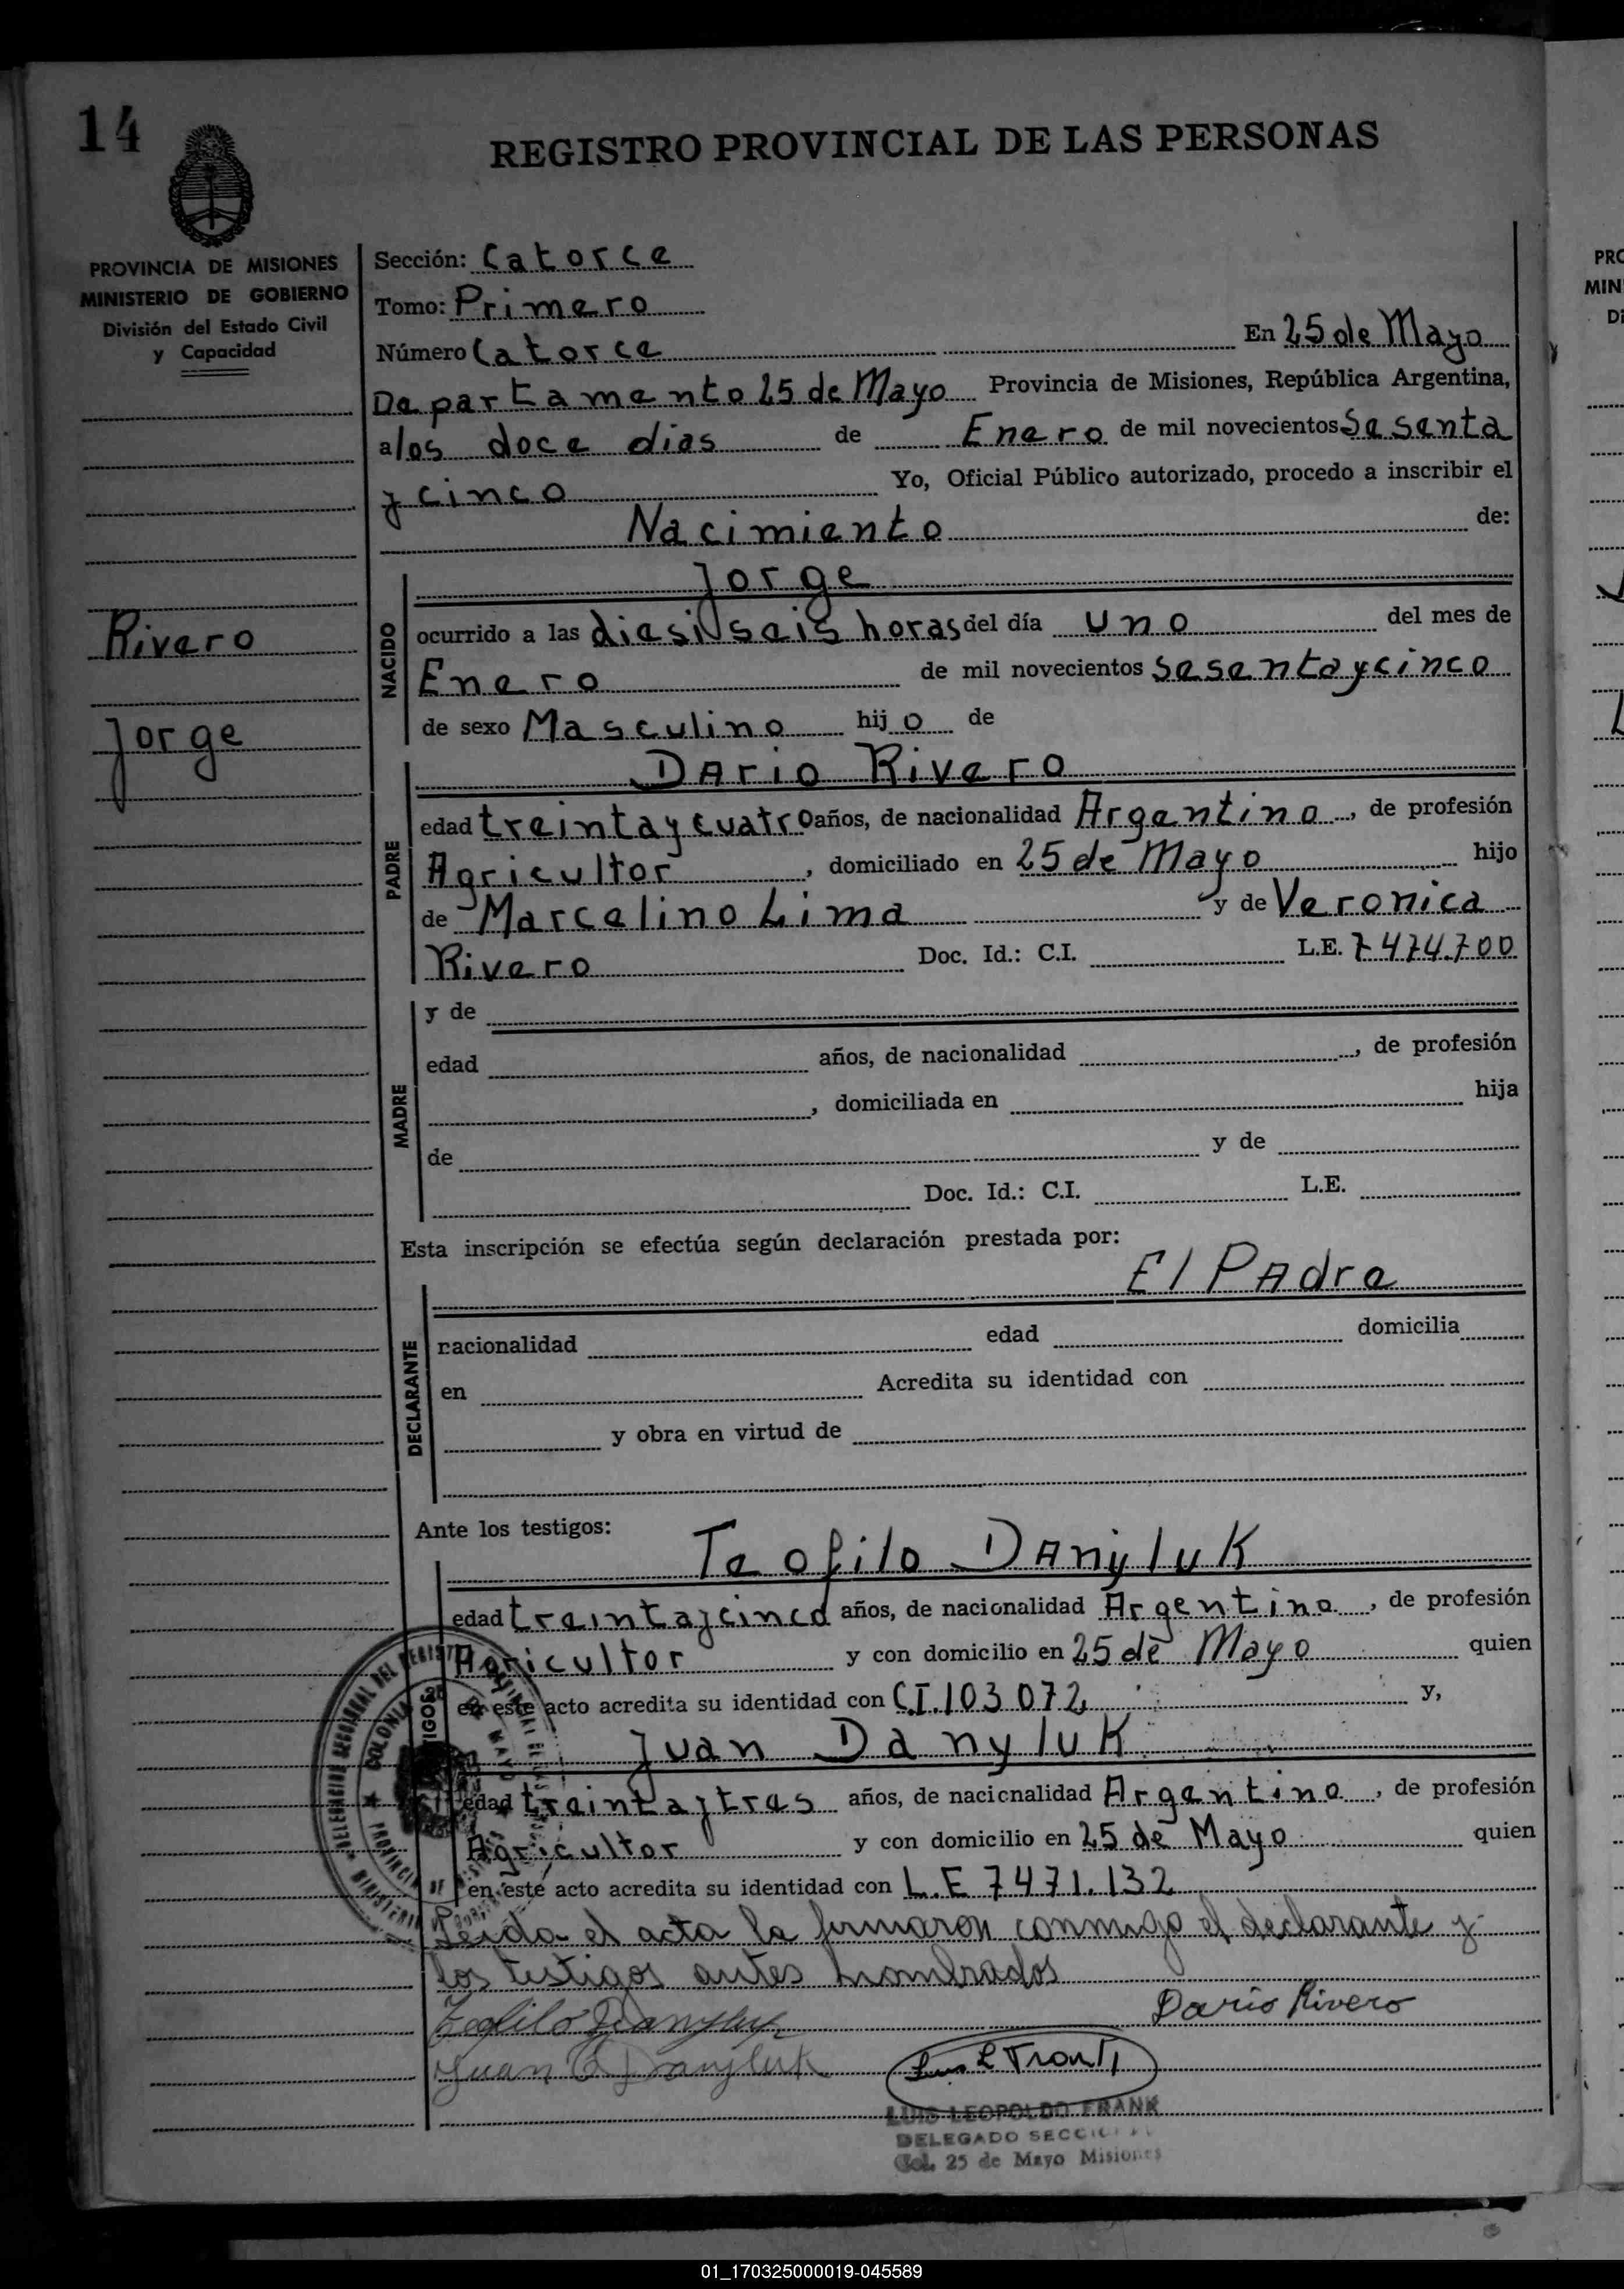 14
REGISTRO PROVINCIAL DE LAS PERSONAS
PROVINCIA DE MISIONES
MINISTERIO DE GOBIERNO
División del Estado Civil
y Capacidad
Rivero
Jorge
Sección: Catorce
Tomo: Primero
Número Catorce En 25 de Mayo
Departamento 25 de Mayo Provincia de Misiones, República Argentina,
a los doce dias de Enero de mil novecientos Sesenta
y cinco Yo, Oficial Público autorizado, procedo a inscribir el
Nacimiento de:
NACIDO
Jorge
ocurrido a las diesiseis horas del día uno del mes de
Enero de mil novecientos sesenta y cinco
de sexo Masculino hijo de
PADRE
Dario Rivero
edad treinta y cuatro años, de nacionalidad Argentino, de profesión
Agricultor, domiciliado en 25 de Mayo hijo
de Marcelino Lima y de Veronica
Rivero Doc. Id.: C.I. L.E. 7474.700
MADRE
y de
edad años, de nacionalidad , de profesión
, domiciliada en hija
de y de
Doc. Id.: C.I. L.E.
Esta inscripción se efectúa según declaración prestada por:
El Padre
DECLARANTE
nacionalidad edad domicilia
en Acredita su identidad con
y obra en virtud de
Ante los testigos:
Teofilo Danyluk
edad treinta y cinco años, de nacionalidad Argentino, de profesión
Agricultor y con domicilio en 25 de Mayo quien
en este acto acredita su identidad con C.I. 103072 y,
Juan Danyluk
edad treinta y tres años, de nacionalidad Argentino, de profesión
Agricultor y con domicilio en 25 de Mayo quien
en este acto acredita su identidad con L.E 7471.132
Leida el acta la firmaron conmigo el declarante y
los testigos antes nombrados
Teofilo Danyluk Dario Rivero
Juan Danyluk
LUIS LEOPOLDO FRANK
DELEGADO
Col. 25 de Mayo Misiones
PRO
MIN
Di
01_170325000019-045589